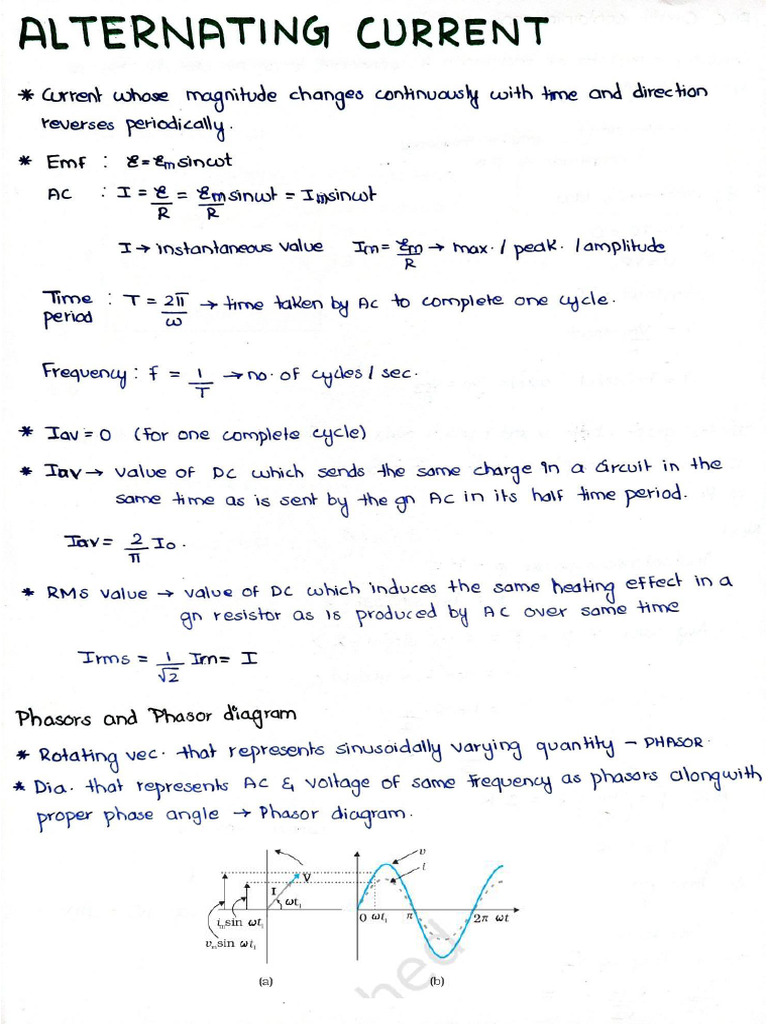 ALTERNATING CURRENT
* Current whose magnitude changes continuously with time and direction
reverses periodically.
* Emf : ℰ = ℰm sinωt
AC : I = ℰ/R = ℰm/R sinωt = Im sinωt
I → instantaneous value Im = ℰm/R → max. / peak. / amplitude
Time period : T = 2π/ω → time taken by AC to complete one cycle.
Frequency : f = 1/T → no. of cycles / sec.
* Iav = 0 (for one complete cycle)
* Iav → value of DC which sends the same charge in a circuit in the
same time as is sent by the gn AC in its half time period.
Iav = 2/π Io.
* RMS value → value of DC which induces the same heating effect in a
gn resistor as is produced by AC over same time
Irms = 1/√2 Im = I
Phasors and Phasor diagram
* Rotating vec. that represents sinusoidally varying quantity – PHASOR.
* Dia. that represents AC & voltage of same frequency as phasors alongwith
proper phase angle → Phasor diagram.
V I ωt₁
iₘsin ωt₁
vₘsin ωt₁
(a)
v
i
0 ωt₁ π 2π ωt
(b)
hed